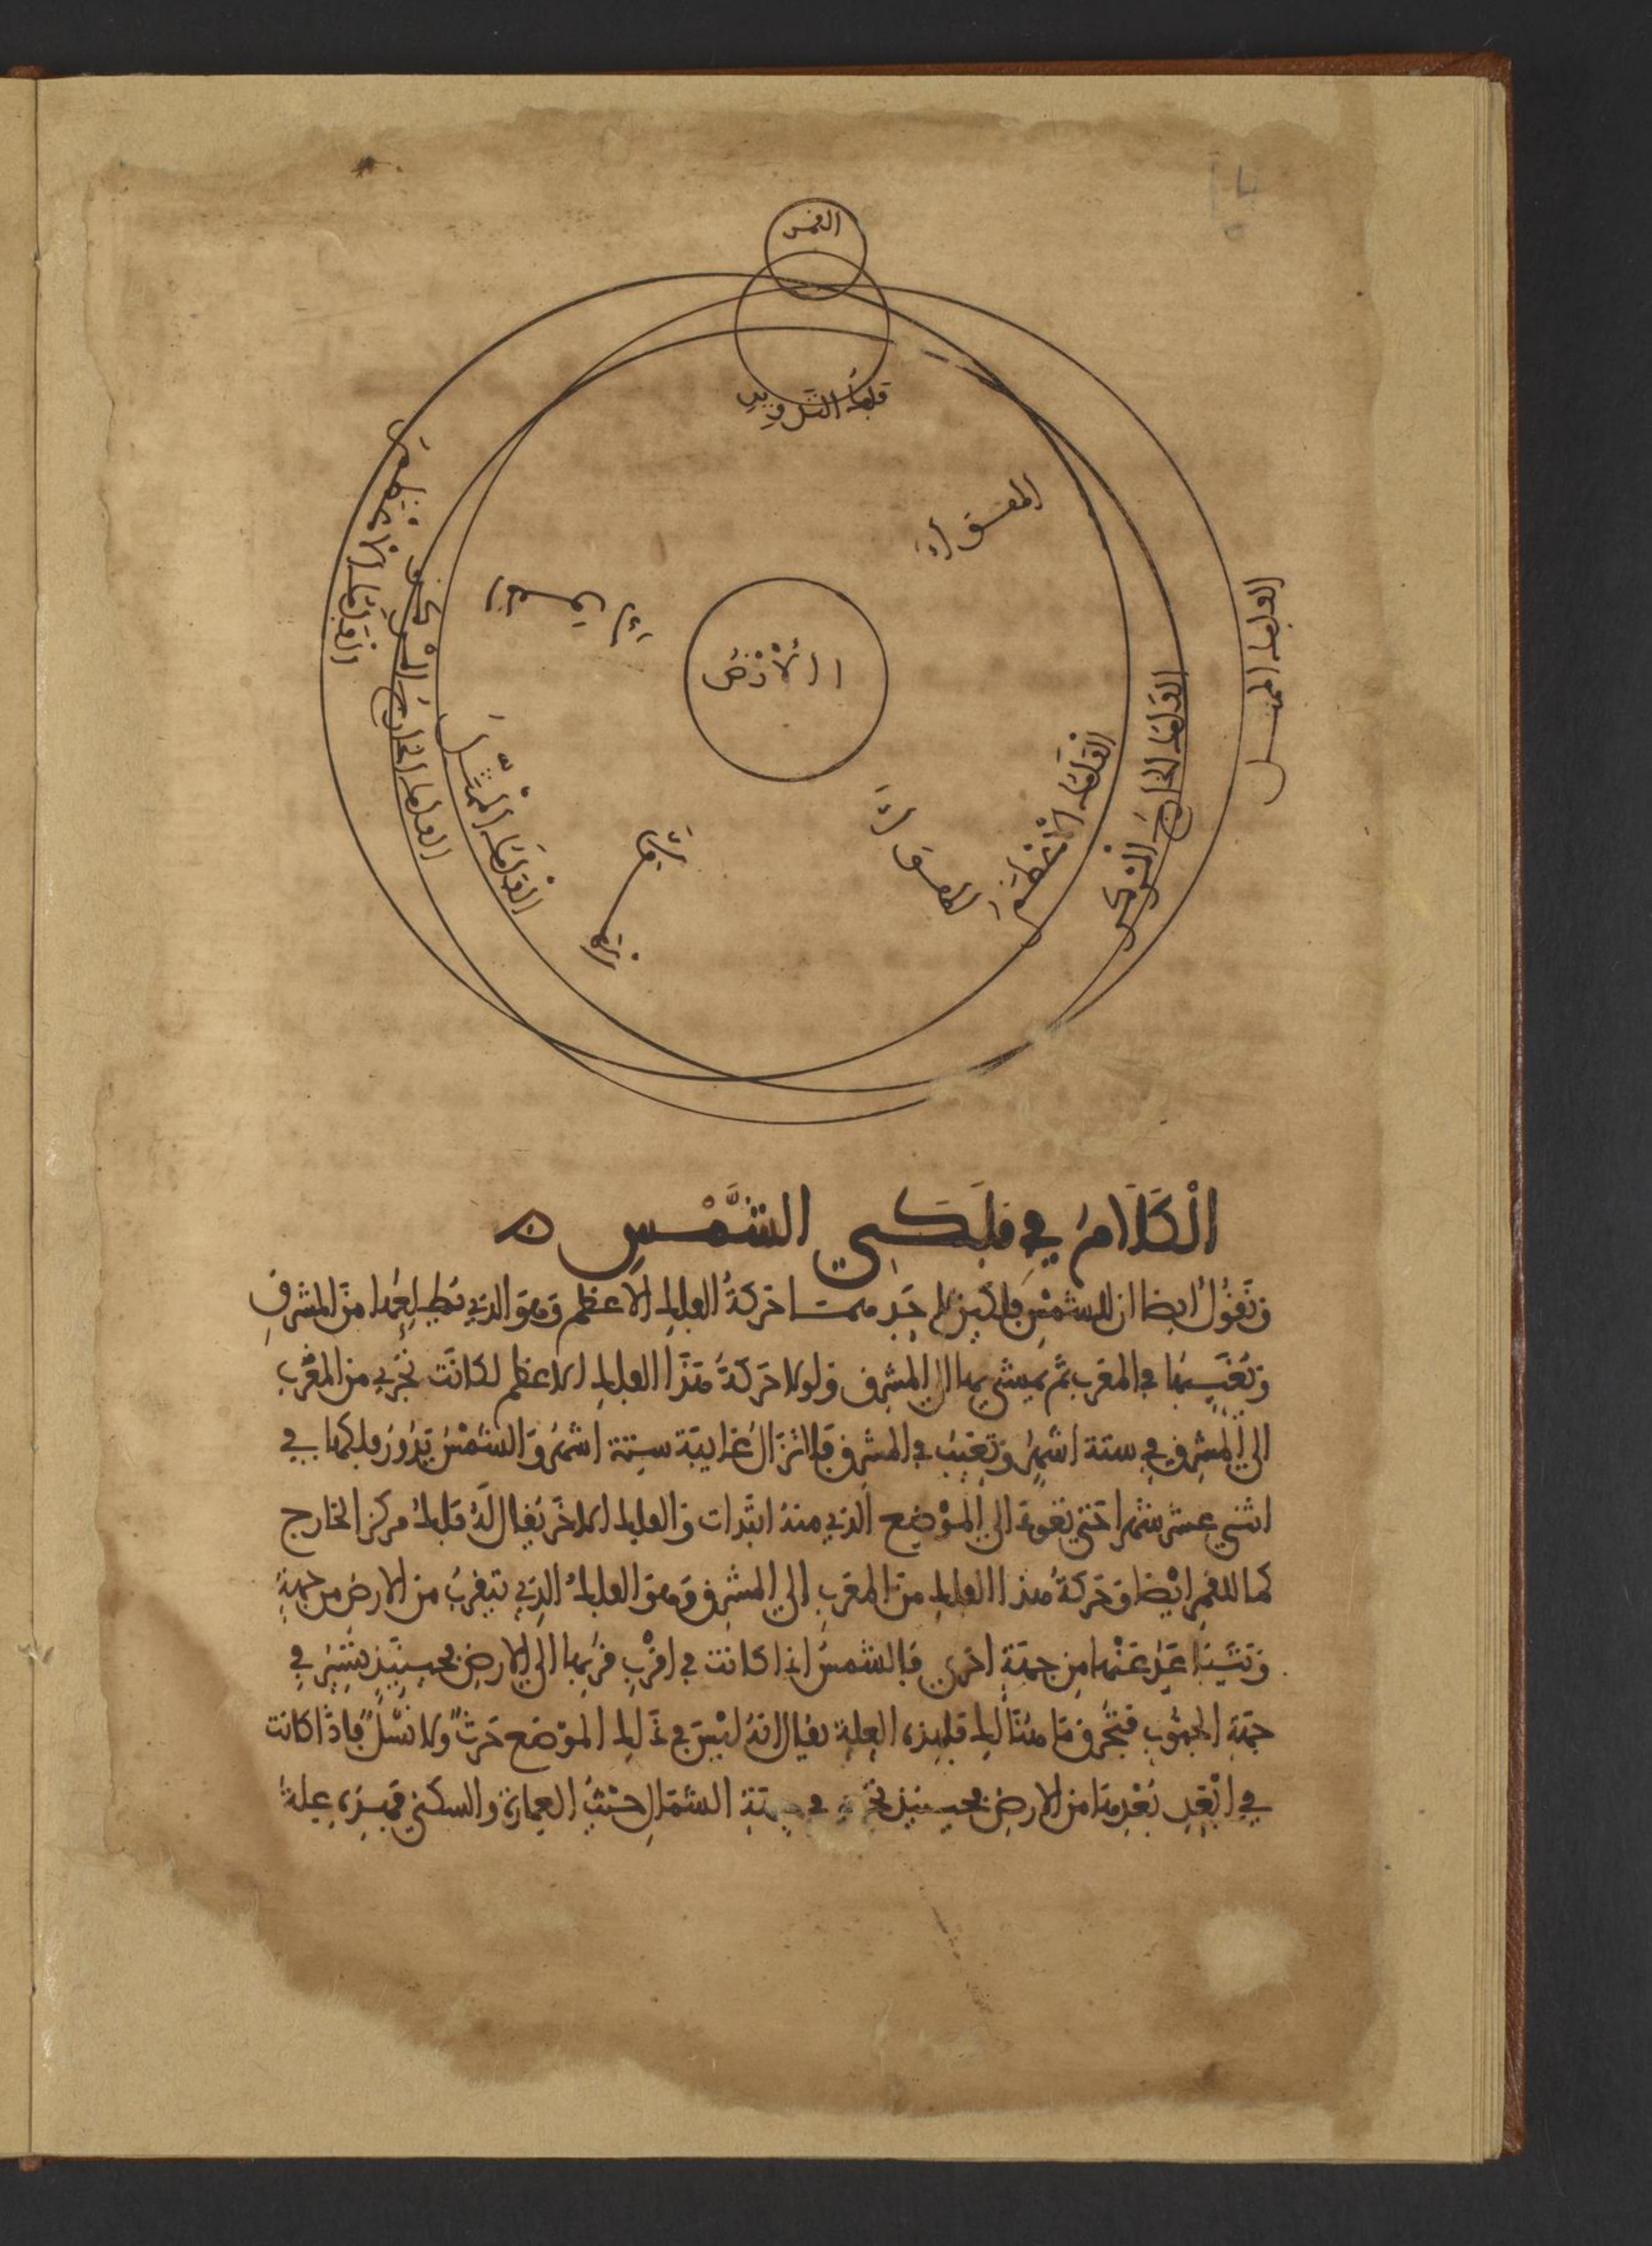 القمر
فلك التدوير
الفلك الأعظم
الفلك الخارج المركز
الفلك الممثل
الهواء
الأرض
الفلك الأعظم
الفلك الخارج المركز
الفلك الممثل
الْكَلَامُ في فلَكَي الشَّمْسِ
ونقول ايضا ان للشمس فلكين احد حركة الفلك الاعظم وهو الذي يطلعها من المشرق
وتغيبها في المغرب ثم يمشي بها الى المشرق ولولا حركة هذا الفلك الاعظم لكانت تجري من المغرب
الى المشرق في ستة اشهر وتغيب في المشرق فلا تزال غايبة ستة اشهر والشمس تدور فلكها في
اثني عشر شهرا حتى تعود الى الموضع الذي منه ابتدات والفلك الاخر يقال له فلك مركز الخارج
كما للقمر ايضا وحركة هذا الفلك من المغرب الى المشرق وهو الفلك الذي يقرب من الارض من جهة
عنها من جهة اخرى فالشمس اذا كانت في اقرب قربها الى الارض فحينئذ تسير في
جهة الجنوب فتحرق ما هنالك فلهذه العلة يقال انه ليس في ذلك الموضع حرث ولا نسل فاذا كانت
في ابعد بعدها من الارض فحينئذ تجري في جهة الشمال حيث العمارة والسكنى فهذه علة